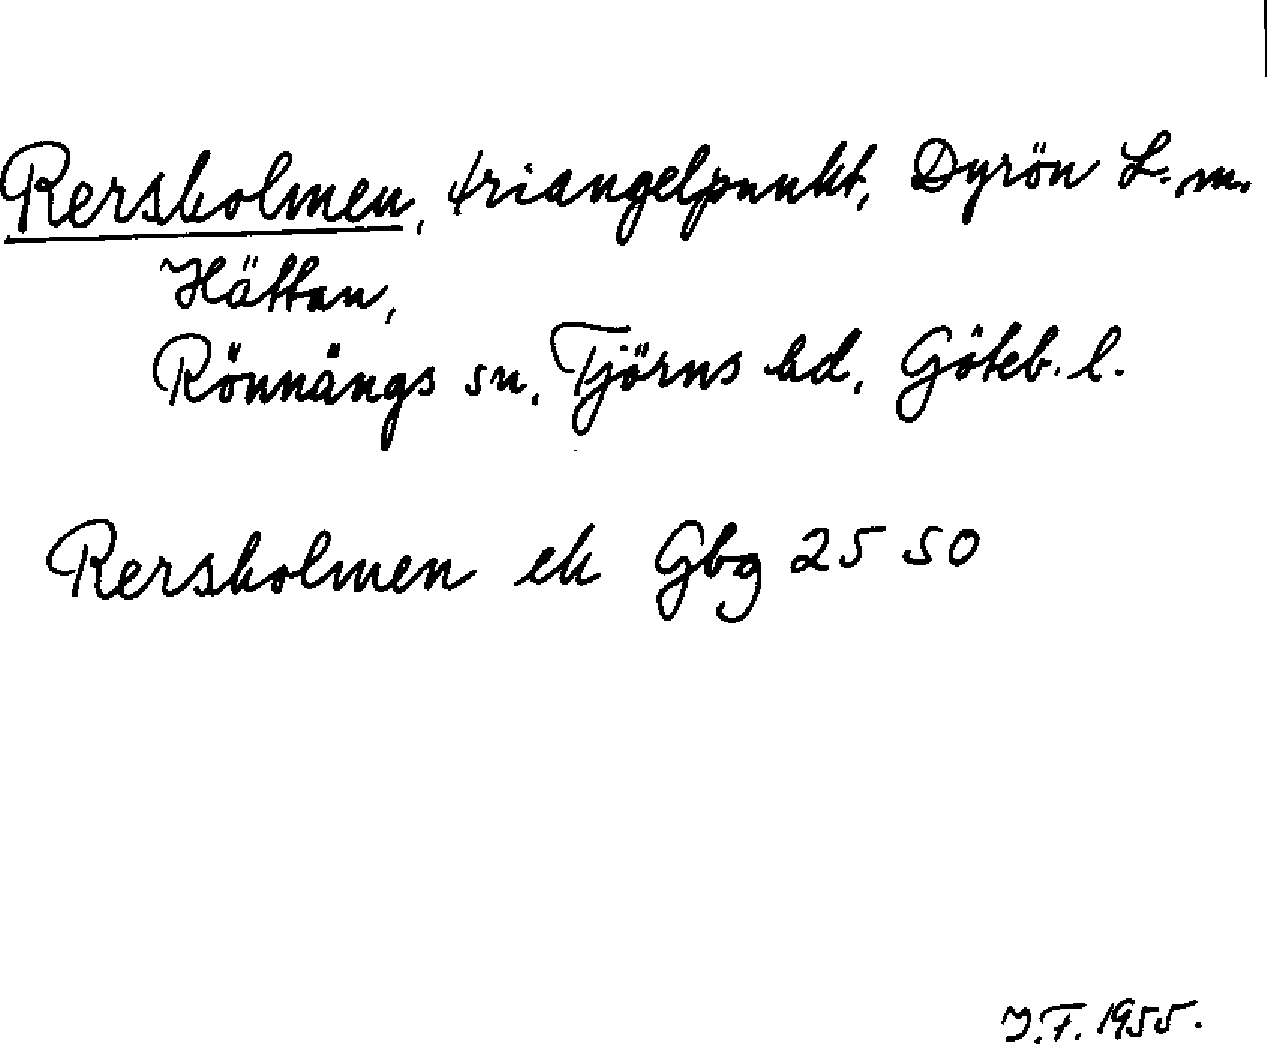 Rersholmen, triangelpunkt, Dyrön L. m.
Hättan,
Rönnängs sn, Tjörns hd, Göteb. l.
Rersholmen ek Gbg 25 50
J.F. 1955.